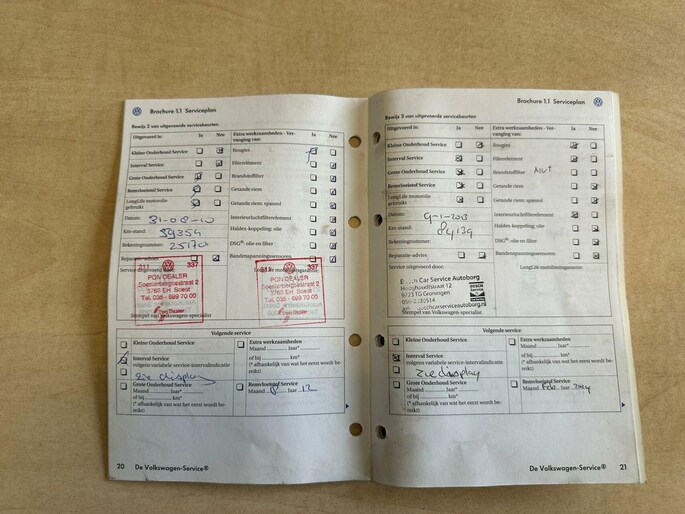 Brochure 1.1 Serviceplan
Bewijs 2 van uitgevoerde servicebeurten
Uitgevoerd is: Ja Nee
Extra werkzaamheden - Ver-
vanging van: Ja Nee
Kleine Onderhoud Service
Interval Service
Grote Onderhoud Service
Remvloeistof Service
LongLife motorolie
gebruikt
Bougies
Filterelement
Brandstoffilter
Getande riem
Getande riem: spanrol
Interieurluchtfilterelement
Haldex-koppeling: olie
DSG®: olie en filter
Bandenspanningssensoren
Datum: 31-08-10
Km-stand: 59354
Rekeningnummer: 25170
Reparatie-advies
Service uitgevoerd door:
211 337
PON DEALER
Soesterbergsestraat 2
3768 EH Soest
Tel. 035 - 699 70 00
Pon Dealer
337
PON DEALER
Soesterbergsestraat 2
3768 EH Soest
Tel. 035 - 699 70 00
Pon Dealer
Stempel van Volkswagen-specialist
Volgende service
Kleine Onderhoud Service
Interval Service
volgens variabele service-intervalindicatie
zie display
Grote Onderhoud Service
Maand jaar*
of bij km*
(* afhankelijk van wat het eerst wordt be-
reikt)
Extra werkzaamheden
Maand jaar*
of bij km*
(* afhankelijk van wat het eerst wordt be-
reikt)
Remvloeistof Service
Maand 8 jaar 12
20 De Volkswagen-Service®
Brochure 1.1 Serviceplan
Bewijs 3 van uitgevoerde servicebeurten
Uitgevoerd is: Ja Nee
Extra werkzaamheden - Ver-
vanging van: Ja Nee
Kleine Onderhoud Service
Interval Service
Grote Onderhoud Service
Remvloeistof Service
LongLife motorolie
gebruikt
Bougies
Filterelement
Brandstoffilter
Getande riem
Getande riem: spanrol
Interieurluchtfilterelement
Haldex-koppeling: olie
DSG®: olie en filter
Bandenspanningssensoren
LongLife mobiliteitsgarantie
Datum: 9-1-2013
Km-stand: 84139
Rekeningnummer:
Reparatie-advies
Service uitgevoerd door:
Car Service Autoborg
Hooghoudtstraat 12
9723 TG Groningen
BOSCH
Service
Stempel van Volkswagen-specialist
Volgende service
Kleine Onderhoud Service
Interval Service
volgens variabele service-intervalindicatie
zie display
Grote Onderhoud Service
Maand jaar*
of bij km*
(* afhankelijk van wat het eerst wordt be-
reikt)
Extra werkzaamheden
Maand jaar*
of bij km*
(* afhankelijk van wat het eerst wordt be-
reikt)
Remvloeistof Service
Maand jaar 2014
De Volkswagen-Service® 21